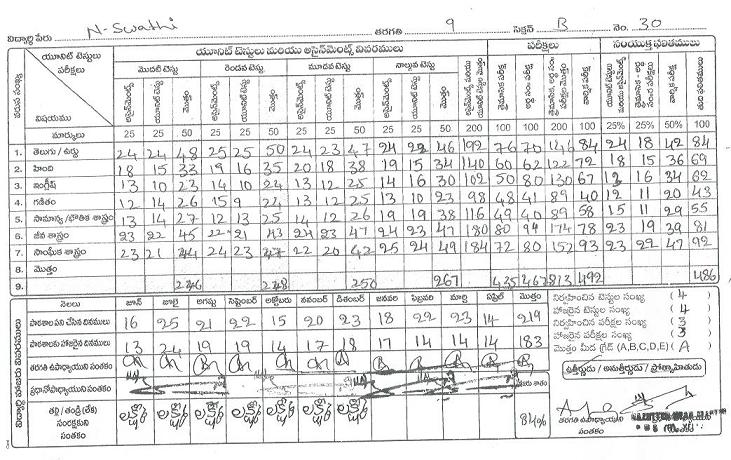 విద్యార్థి పేరు N-Swathi తరగతి 9 సెక్షన్ B నెం. 30
యూనిట్ టెస్టులు పరీక్షలు యూనిట్ టెస్టులు మరియు అసైన్‌మెంట్స్ వివరములు పరీక్షలు సంయుక్త ఫలితములు
మొదటి టెస్టు రెండవ టెస్టు మూడవ టెస్టు నాల్గవ టెస్టు
వరుస సంఖ్య విషయము అసైన్‌మెంట్స్ యూనిట్ టెస్టు మొత్తం అసైన్‌మెంట్స్ యూనిట్ టెస్టు మొత్తం అసైన్‌మెంట్స్ యూనిట్ టెస్టు మొత్తం అసైన్‌మెంట్స్ యూనిట్ టెస్టు మొత్తం
మార్కులు 25 25 50 25 25 50 25 25 50 25 25 50 200 100 100 200 100 25% 25% 50% 100
1. తెలుగు / ఉర్దు 24 24 48 25 25 50 24 23 47 24 22 46 192 76 70 146 84 24 18 42 84
2. హింది 18 15 33 19 16 35 20 18 38 19 15 34 140 60 62 122 72 18 15 36 69
3. ఇంగ్లీష్ 13 10 23 14 10 24 13 12 25 14 16 30 102 50 80 130 67 12 16 34 62
4. గణితం 12 14 26 15 9 24 13 12 25 13 10 23 98 48 41 89 40 12 11 20 43
5. సామాన్య / భౌతిక శాస్త్రం 13 14 27 12 13 25 14 12 26 19 19 38 116 49 40 89 58 15 11 29 55
6. జీవ శాస్త్రం 23 22 45 22 21 43 24 23 47 24 23 47 180 80 94 174 78 23 19 39 81
7. సాంఘిక శాస్త్రం 23 21 44 24 23 47 22 20 42 25 24 49 184 72 80 152 93 23 22 47 92
8. మొత్తం
9. 246 248 250 267 435 467 813 492 486
నెలలు జూన్ జూలై ఆగష్టు సెప్టెంబర్ అక్టోబరు నవంబర్ డిశంబర్ జనవరి ఫిబ్రవరి మార్చి ఏప్రిల్ మొత్తం
పాఠశాల పని చేసిన దినములు 16 25 21 22 15 20 23 18 22 23 14 219
పాఠశాలకు హాజరైన దినములు 13 24 19 19 14 14 18 17 14 14 14 183
తరగతి ఉపాధ్యాయుని సంతకం
ప్రధానోపాధ్యాయుని సంతకం హాజరు శాతం
తల్లి / తండ్రి (లేక) సంరక్షకుని సంతకం లక్ష్మి లక్ష్మి లక్ష్మి లక్ష్మి లక్ష్మి లక్ష్మి లక్ష్మి 84%
విద్యార్థి హాజరు వివరములు
నిర్వహించిన టెస్టుల సంఖ్య ( 4 )
హాజరైన టెస్టుల సంఖ్య ( 4 )
నిర్వహించిన పరీక్షల సంఖ్య ( 3 )
హాజరైన పరీక్షల సంఖ్య ( 3 )
మొత్తం మీద గ్రేడ్ (A,B,C,D,E) ( A )
ఉత్తీర్ణుడు / అనుత్తీర్ణుడు / ప్రోత్సాహితుడు
తరగతి ఉపాధ్యాయుని సంతకం